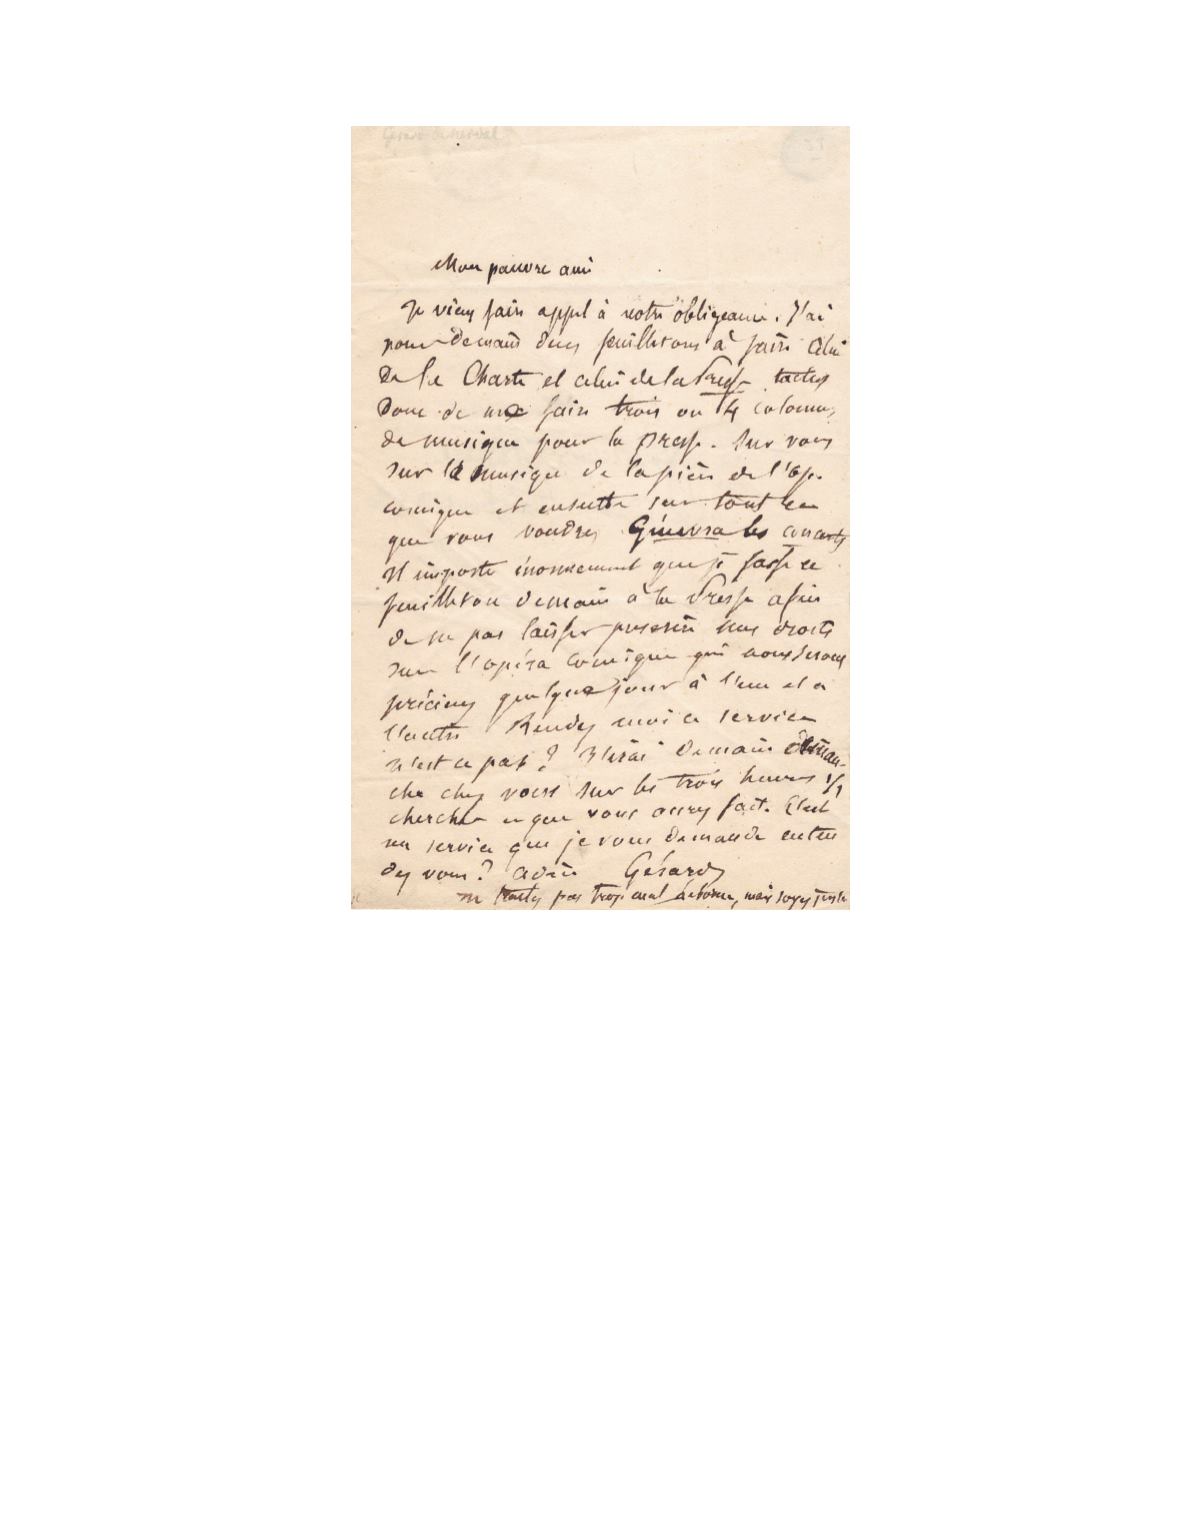 Gérard de Nerval
Mon pauvre ami
Je viens faire appel à votre obligeance. J'ai
pour demain deux feuilletons à faire Celui
De la Charte et celui de la Presse tachez
Donc de me faire trois ou 4 colonnes
de musique pour la presse. Sur vous
sur la musique de la pièce de l'op.
comique et ensuite sur tout ce
que vous voudrez Guinevra les concerts
Il importe énormement que je fasse ce
feuilleton demain à la Presse afin
de ne pas laisser prescrire nos droits
sur l'opéra comique qui nous seront
précieux quelque jour à l'un et a
l'autre Rendez moi ce service
n'est ce pas? J'irai demain diman-
che chez vous sur les trois heures 1/2
chercher ce que vous aurez fait. C'est
un service que je vous demande enten
dez vous? adieu Gérard
ne traitez pas trop mal, mais soyez juste